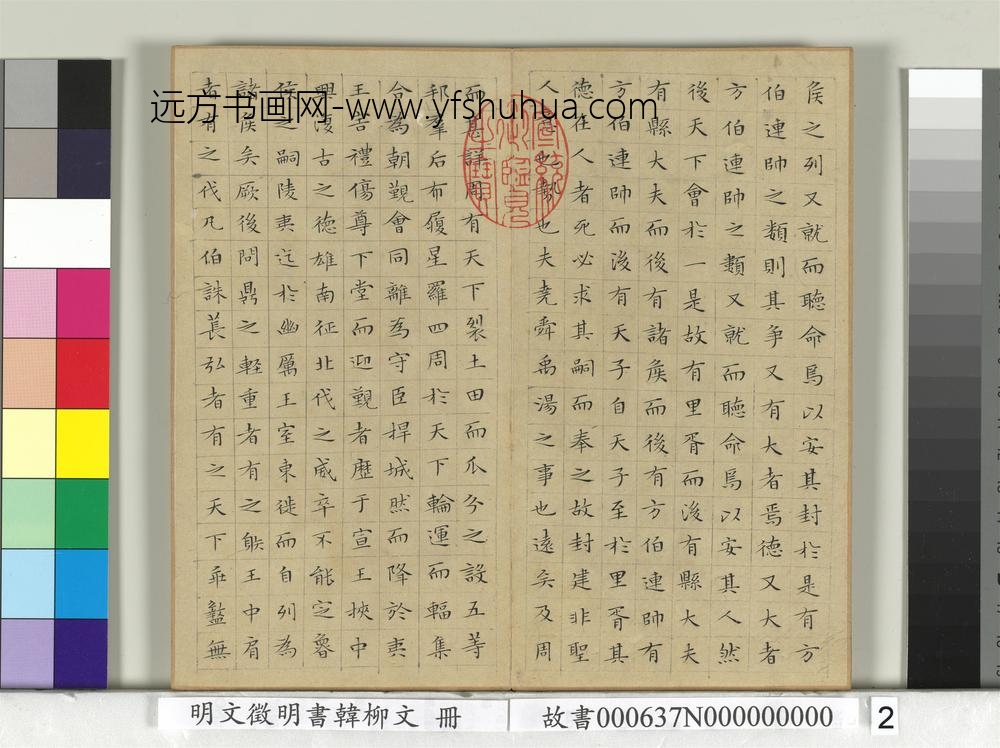 远方书画网-www.yfshuhua.com
侯之列又就而聽命焉以安其封於是有方
伯連帥之類則其爭又有大者焉德又大者
方伯連帥之類又就而聽命焉以安其人然
後天下會於一是故有里胥而後有縣大夫
有縣大夫而後有諸侯而後有方伯連帥有
方伯連帥而後有天子自天子至於里胥其
德在人者死必求其嗣而奉之故封建非聖
人意也勢也夫堯舜禹湯之事也遠矣及周
而甚詳周有天下裂土田而瓜分之設五等
邦羣后布履星羅四周於天下輪運而輻集
合為朝覲會同離為守臣捍城然而降於夷
王害禮傷尊下堂而迎覲者歷于宣王挾中
興復古之德雄南征北伐之威卒不能定魯
侯之嗣陵夷迄於幽厲王室東徙而自列為
諸侯矣厥後問鼎之輕重者有之射王中肩
者有之伐凡伯誅萇弘者有之天下乖盭無
明文徵明書韓柳文 冊
故書000637N000000000
2